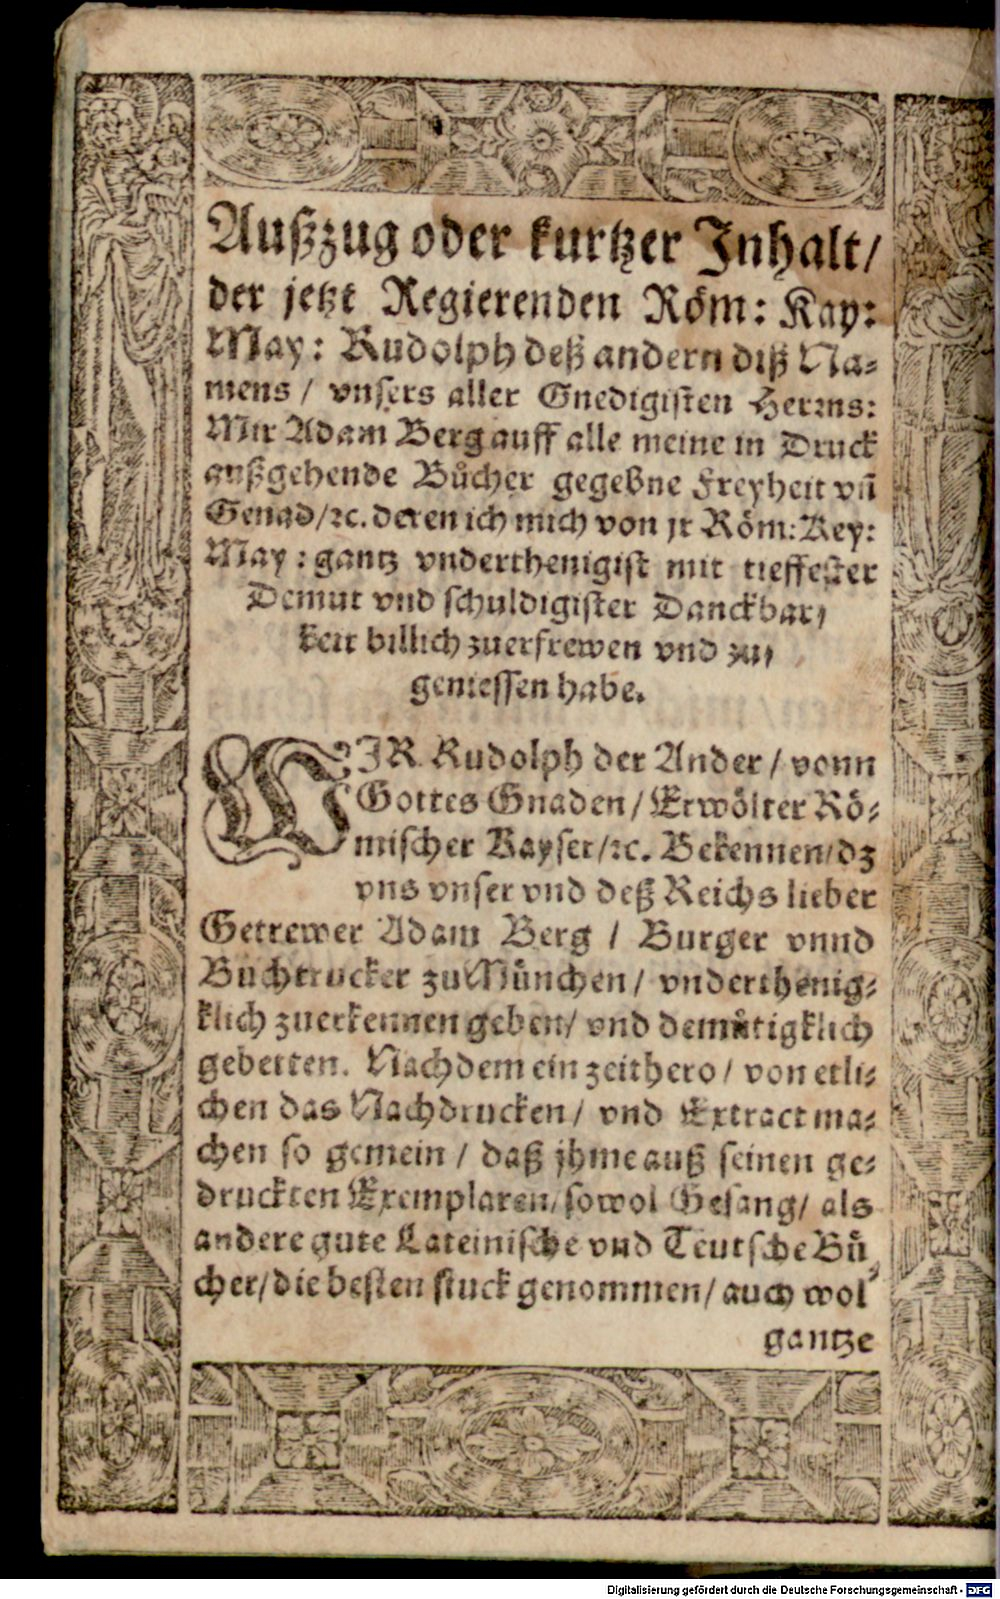 Außzug oder kurtzer Inhalt/
der jetzt Regierenden Röm: Kay:
May: Rudolph deß andern diß Na-
mens / vnsers aller Gnedigisten Herꝛns:
Mir Adam Berg auff alle meine in Druck
außgehende Bücher gegebne Freyheit vñ
Genad/ꝛc. deren ich mich von jr Röm: Key:
May: gantz vnderthenigist mit tieffester
Demut vnd schuldigister Danckbar,
keit billich zuerfrewen vnd zu,
geniessen habe.
WIR Rudolph der Ander / vonn
Gottes Gnaden / Erwölter Rö-
mischer Kayser/ꝛc. Bekennen/dz
vns vnser vnd deß Reichs lieber
Getrewer Adam Berg / Burger vnnd
Buchtrucker zu München / vnderthenig-
klich zuerkennen geben/ vnd demütigklich
gebetten. Nachdem ein zeithero / von etli-
chen das Nachdrucken / vnd Extract ma-
chen so gemein / daß jhme auß seinen ge-
druckten Exemplaren/ sowol Gesang/ als
andere gute Lateinische vnd Teutsche Bü,
cher/die besten stuck genommen/ auch wol
gantze
Digitalisierung gefördert durch die Deutsche Forschungsgemeinschaft - DFG